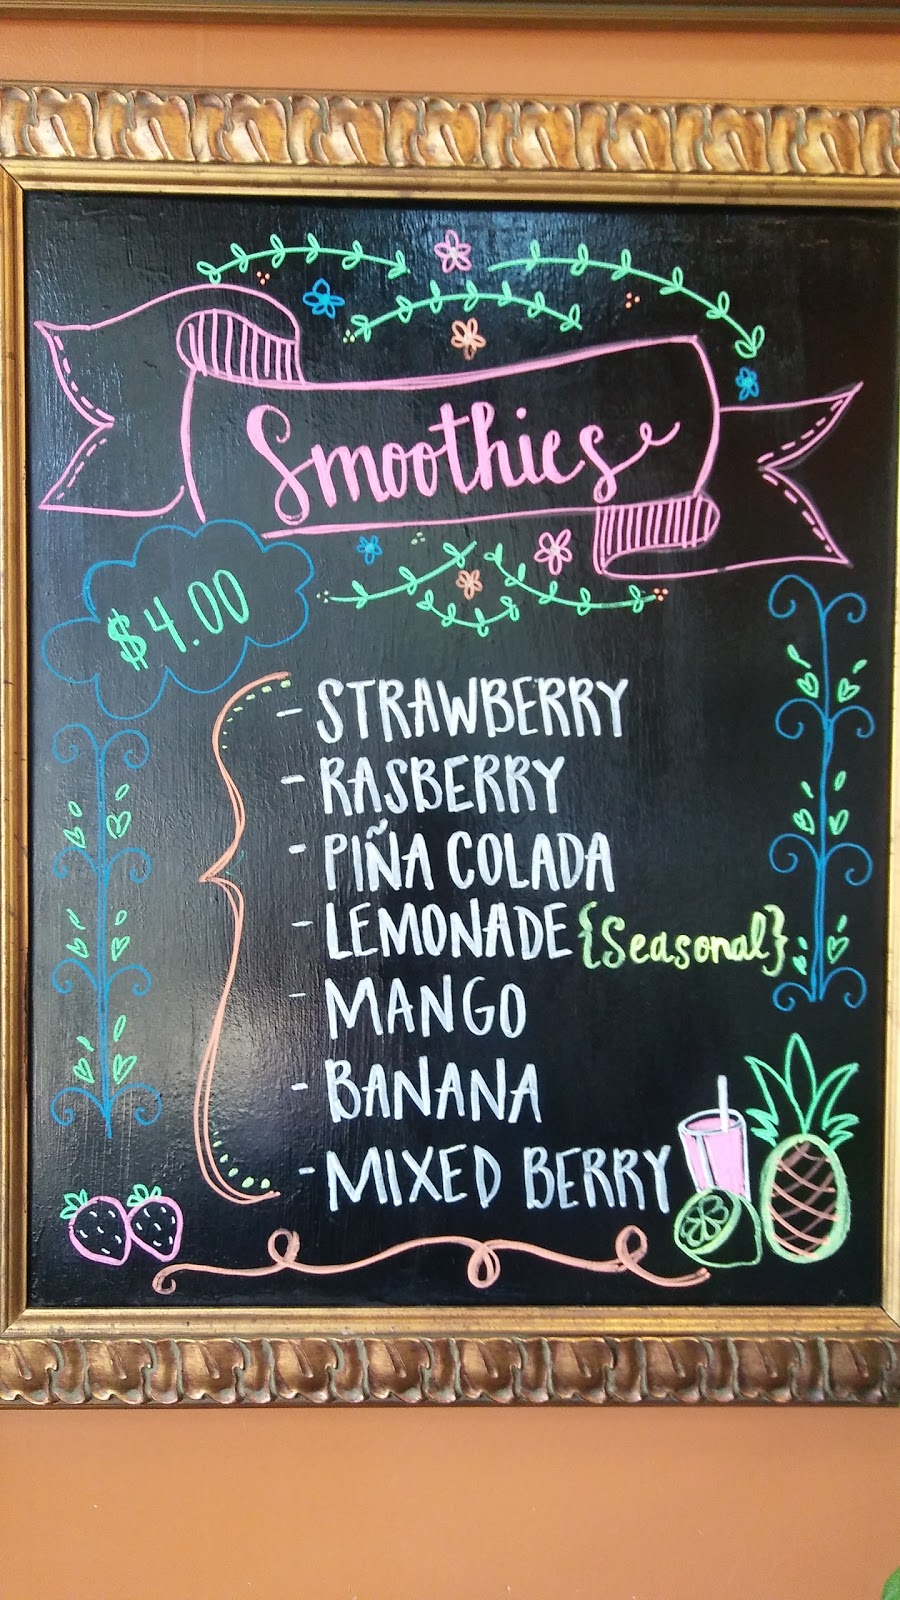 Smoothies
$4.00
- STRAWBERRY
- RASBERRY
- PIÑA COLADA
- LEMONADE {Seasonal}
- MANGO
- BANANA
- MIXED BERRY